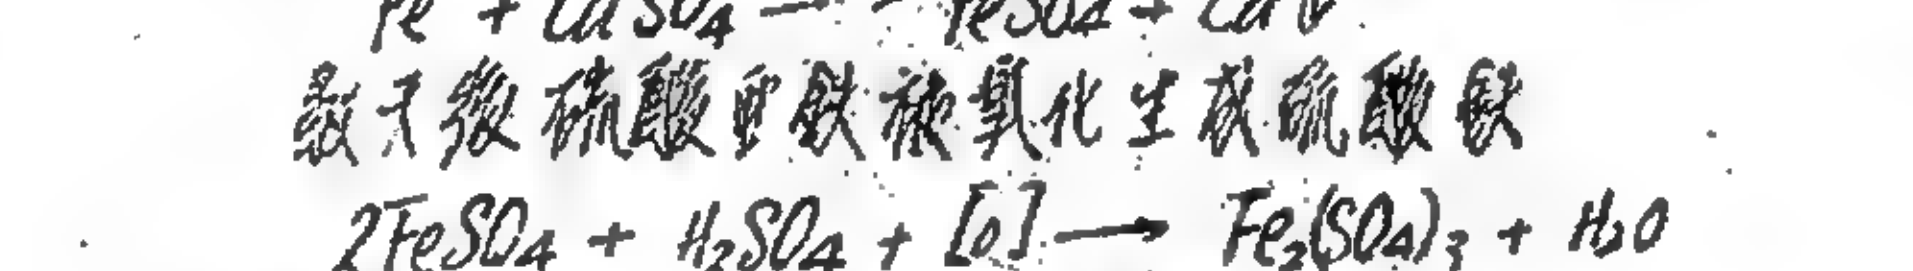 Fe + CuSO4 → FeSO4 + Cu↓
數天後硫酸亞鉄被氧化生成硫酸鉄
2FeSO4 + H2SO4 + [O] → Fe2(SO4)3 + H2O